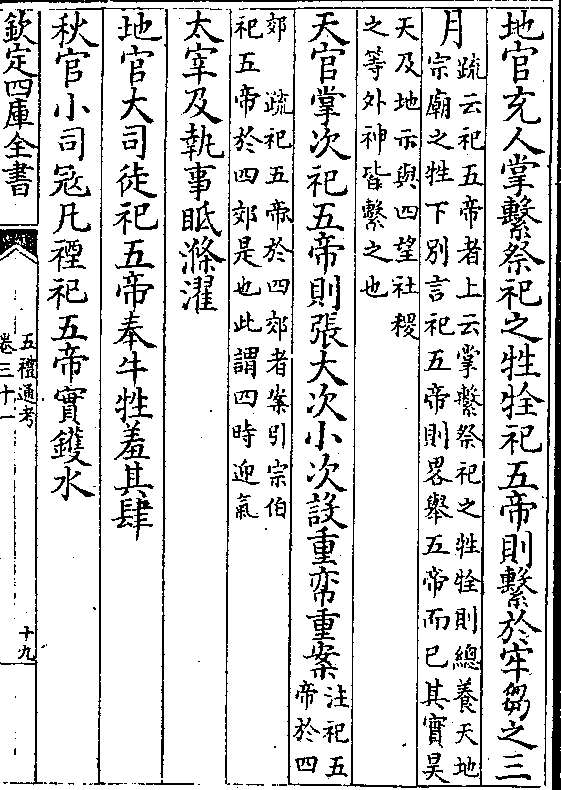 地官充人掌繫祭祀之牲牷祀五帝則繫於牢芻之三
月
疏云祀五帝者上云掌繫祭祀之牲牷則總養天地
宗廟之牲下別言祀五帝則畧舉五帝而已其實昊
天及地示與四望社稷
之等外神皆繫之也
天官掌次祀五帝則張大次小次設重帟重案
注祀五
帝於四
郊　疏祀五帝於四郊者案引宗伯
祀五帝於四郊是也此謂四時迎氣
太宰及執事眡滌濯
地官大司徒祀五帝奉牛牲羞其肆
秋官小司寇凡禋祀五帝實鑊水
欽定四庫全書
五禮通考
卷三十一
十九